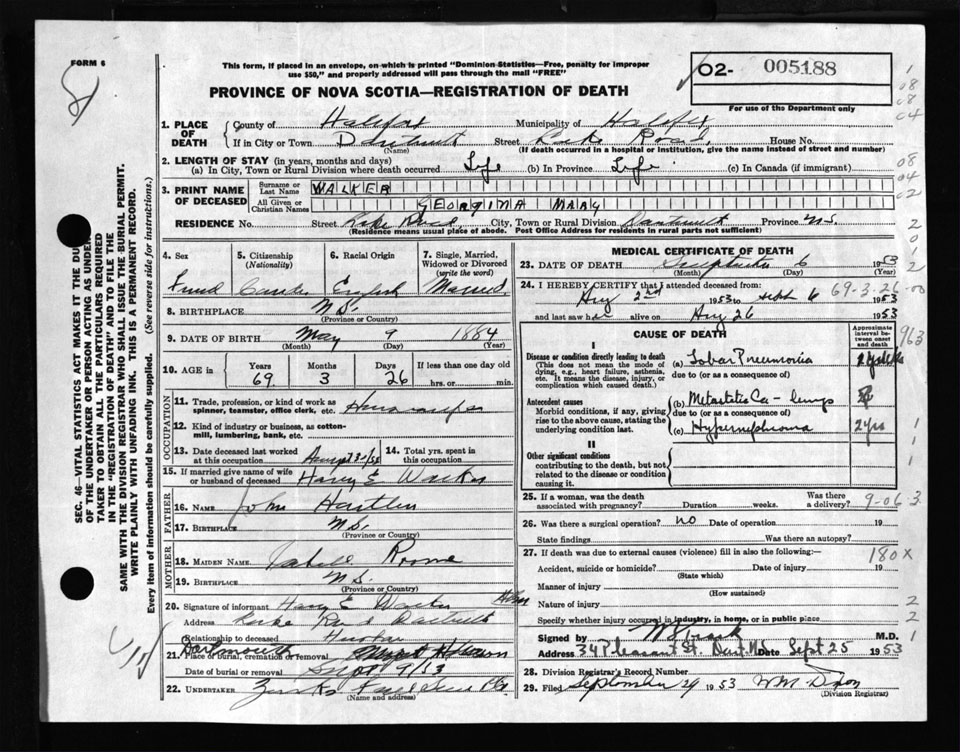 FORM 6
This form, if placed in an envelope, on which is printed "Dominion Statistics—Free, penalty for improper
use $50," and properly addressed will pass through the mail "FREE"
O2- 005188
For use of the Department only
PROVINCE OF NOVA SCOTIA—REGISTRATION OF DEATH
1. PLACE OF DEATH
County of Halifax Municipality of Halifax
If in City or Town Dartmouth Street House No.
(Name) (If death occurred in a hospital or institution, give the name instead of street and number)
2. LENGTH OF STAY (in years, months and days)
(a) In City, Town or Rural Division where death occurred Life (b) In Province Life (c) In Canada (if immigrant)
3. PRINT NAME OF DECEASED
Surname or Last Name WALKER
All Given or Christian Names GEORGINA MARY
RESIDENCE No. Street City, Town or Rural Division Dartmouth Province N.S.
(Residence means usual place of abode. Post Office Address for residents in rural parts not sufficient)
4. Sex
5. Citizenship (Nationality)
6. Racial Origin English
7. Single, Married, Widowed or Divorced (write the word) Married
8. BIRTHPLACE N.S.
(Province or Country)
9. DATE OF BIRTH May 9 1884
(Month) (Day) (Year)
10. AGE in Years Months Days If less than one day old
69 3 26 hrs. or min.
OCCUPATION
11. Trade, profession, or kind of work as spinner, teamster, office clerk, etc.
12. Kind of industry or business, as cotton-mill, lumbering, bank, etc.
13. Date deceased last worked at this occupation
14. Total yrs. spent in this occupation
15. If married give name of wife or husband of deceased Harry E Walker
FATHER
16. NAME John
17. BIRTHPLACE N.S.
(Province or Country)
MOTHER
18. MAIDEN NAME
19. BIRTHPLACE N.S.
(Province or Country)
20. Signature of informant Harry E Walker
Address
Relationship to deceased
21. Place of burial, cremation or removal Dartmouth
Date of burial or removal
22. UNDERTAKER
(Name and address)
MEDICAL CERTIFICATE OF DEATH
23. DATE OF DEATH September 6 1953
(Month) (Day) (Year)
24. I HEREBY CERTIFY that I attended deceased from:
Aug 2nd 1953 to Sept 6 1953
and last saw h alive on Aug 26 1953
69-3-26-00
CAUSE OF DEATH
Approximate interval between onset and death
I
Disease or condition directly leading to death
(This does not mean the mode of dying, e.g., heart failure, asthenia, etc. It means the disease, injury, or complication which caused death.)
(a) Lobar Pneumonia
due to (or as a consequence of)
Antecedent causes
Morbid conditions, if any, giving rise to the above cause, stating the underlying condition last.
(b) Metastatic Ca - lungs
due to (or as a consequence of)
(c) Hypernephroma 2 yrs
II
Other significant conditions
contributing to the death, but not related to the disease or condition causing it.
25. If a woman, was the death associated with pregnancy? Duration weeks. Was there a delivery? 9-06 3
26. Was there a surgical operation? no Date of operation 19
State findings Was there an autopsy?
27. If death was due to external causes (violence) fill in also the following:— 180 X
Accident, suicide or homicide? Date of injury 19
(State which)
Manner of injury
(How sustained)
Nature of injury
Specify whether injury occurred in industry, in home, or in public place
Signed by M.D.
Address 34 Pleasant St. Date Sept 25 1953
28. Division Registrar's Record Number
29. Filed September 29 1953
(Division Registrar)
SEC. 46—VITAL STATISTICS ACT MAKES IT THE DU
OF THE UNDERTAKER OR PERSON ACTING AS UNDER-
TAKER TO OBTAIN ALL THE PARTICULARS REQUIRED
IN THE "REGISTRATION OF DEATH" AND TO FILE THE
SAME WITH THE DIVISION REGISTRAR WHO SHALL ISSUE THE BURIAL PERMIT.
WRITE PLAINLY WITH UNFADING INK. THIS IS A PERMANENT RECORD.
Every item of information should be carefully supplied. (See reverse side for instructions.)